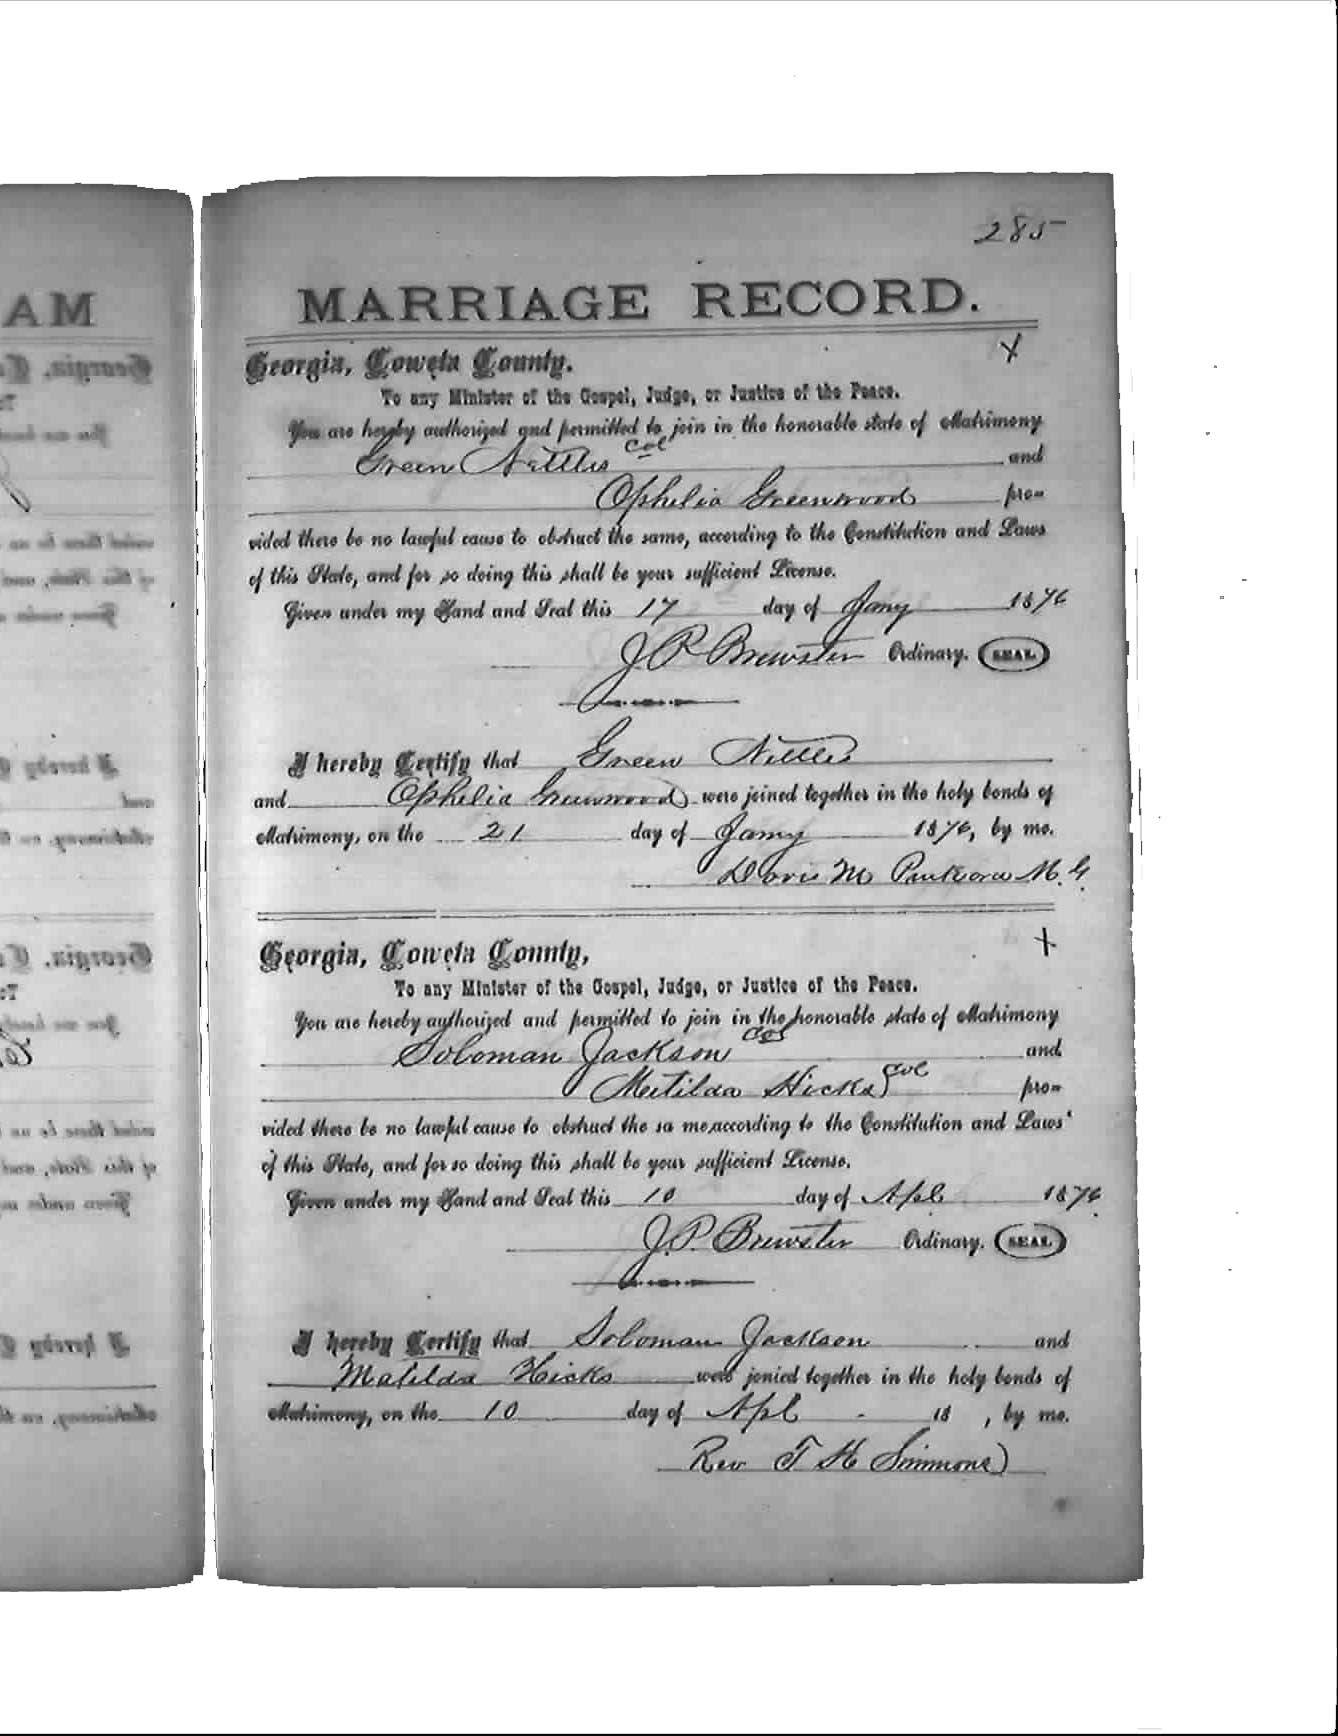 285
MARRIAGE RECORD.
Georgia, Coweta County.
X
To any Minister of the Gospel, Judge, or Justice of the Peace.
You are hereby authorized and permitted to join in the honorable state of Matrimony
Green Nettles Col and
Ophelia Greenwood pro-
vided there be no lawful cause to obstruct the same, according to the Constitution and Laws
of this State, and for so doing this shall be your sufficient License.
Given under my Hand and Seal this 17 day of Jany 1876
J P Brewster Ordinary. SEAL.
I hereby Certify that Green Nettles
and Ophelia Greenwood were joined together in the holy bonds of
Matrimony, on the 21 day of Jany 1876, by me.
Davis M M. G.
Georgia, Coweta County,
X
To any Minister of the Gospel, Judge, or Justice of the Peace.
You are hereby authorized and permitted to join in the honorable state of Matrimony
Soloman Jackson Col and
Matilda Hicks Col pro-
vided there be no lawful cause to obstruct the sa me, according to the Constitution and Laws
of this State, and for so doing this shall be your sufficient License.
Given under my Hand and Seal this 10 day of Apl 1876
J. P. Brewster Ordinary. SEAL.
I hereby Certify that Soloman Jackson and
Matilda Hicks were jonied together in the holy bonds of
Matrimony, on the 10 day of Apl 18 , by me.
Rev T H Simmons